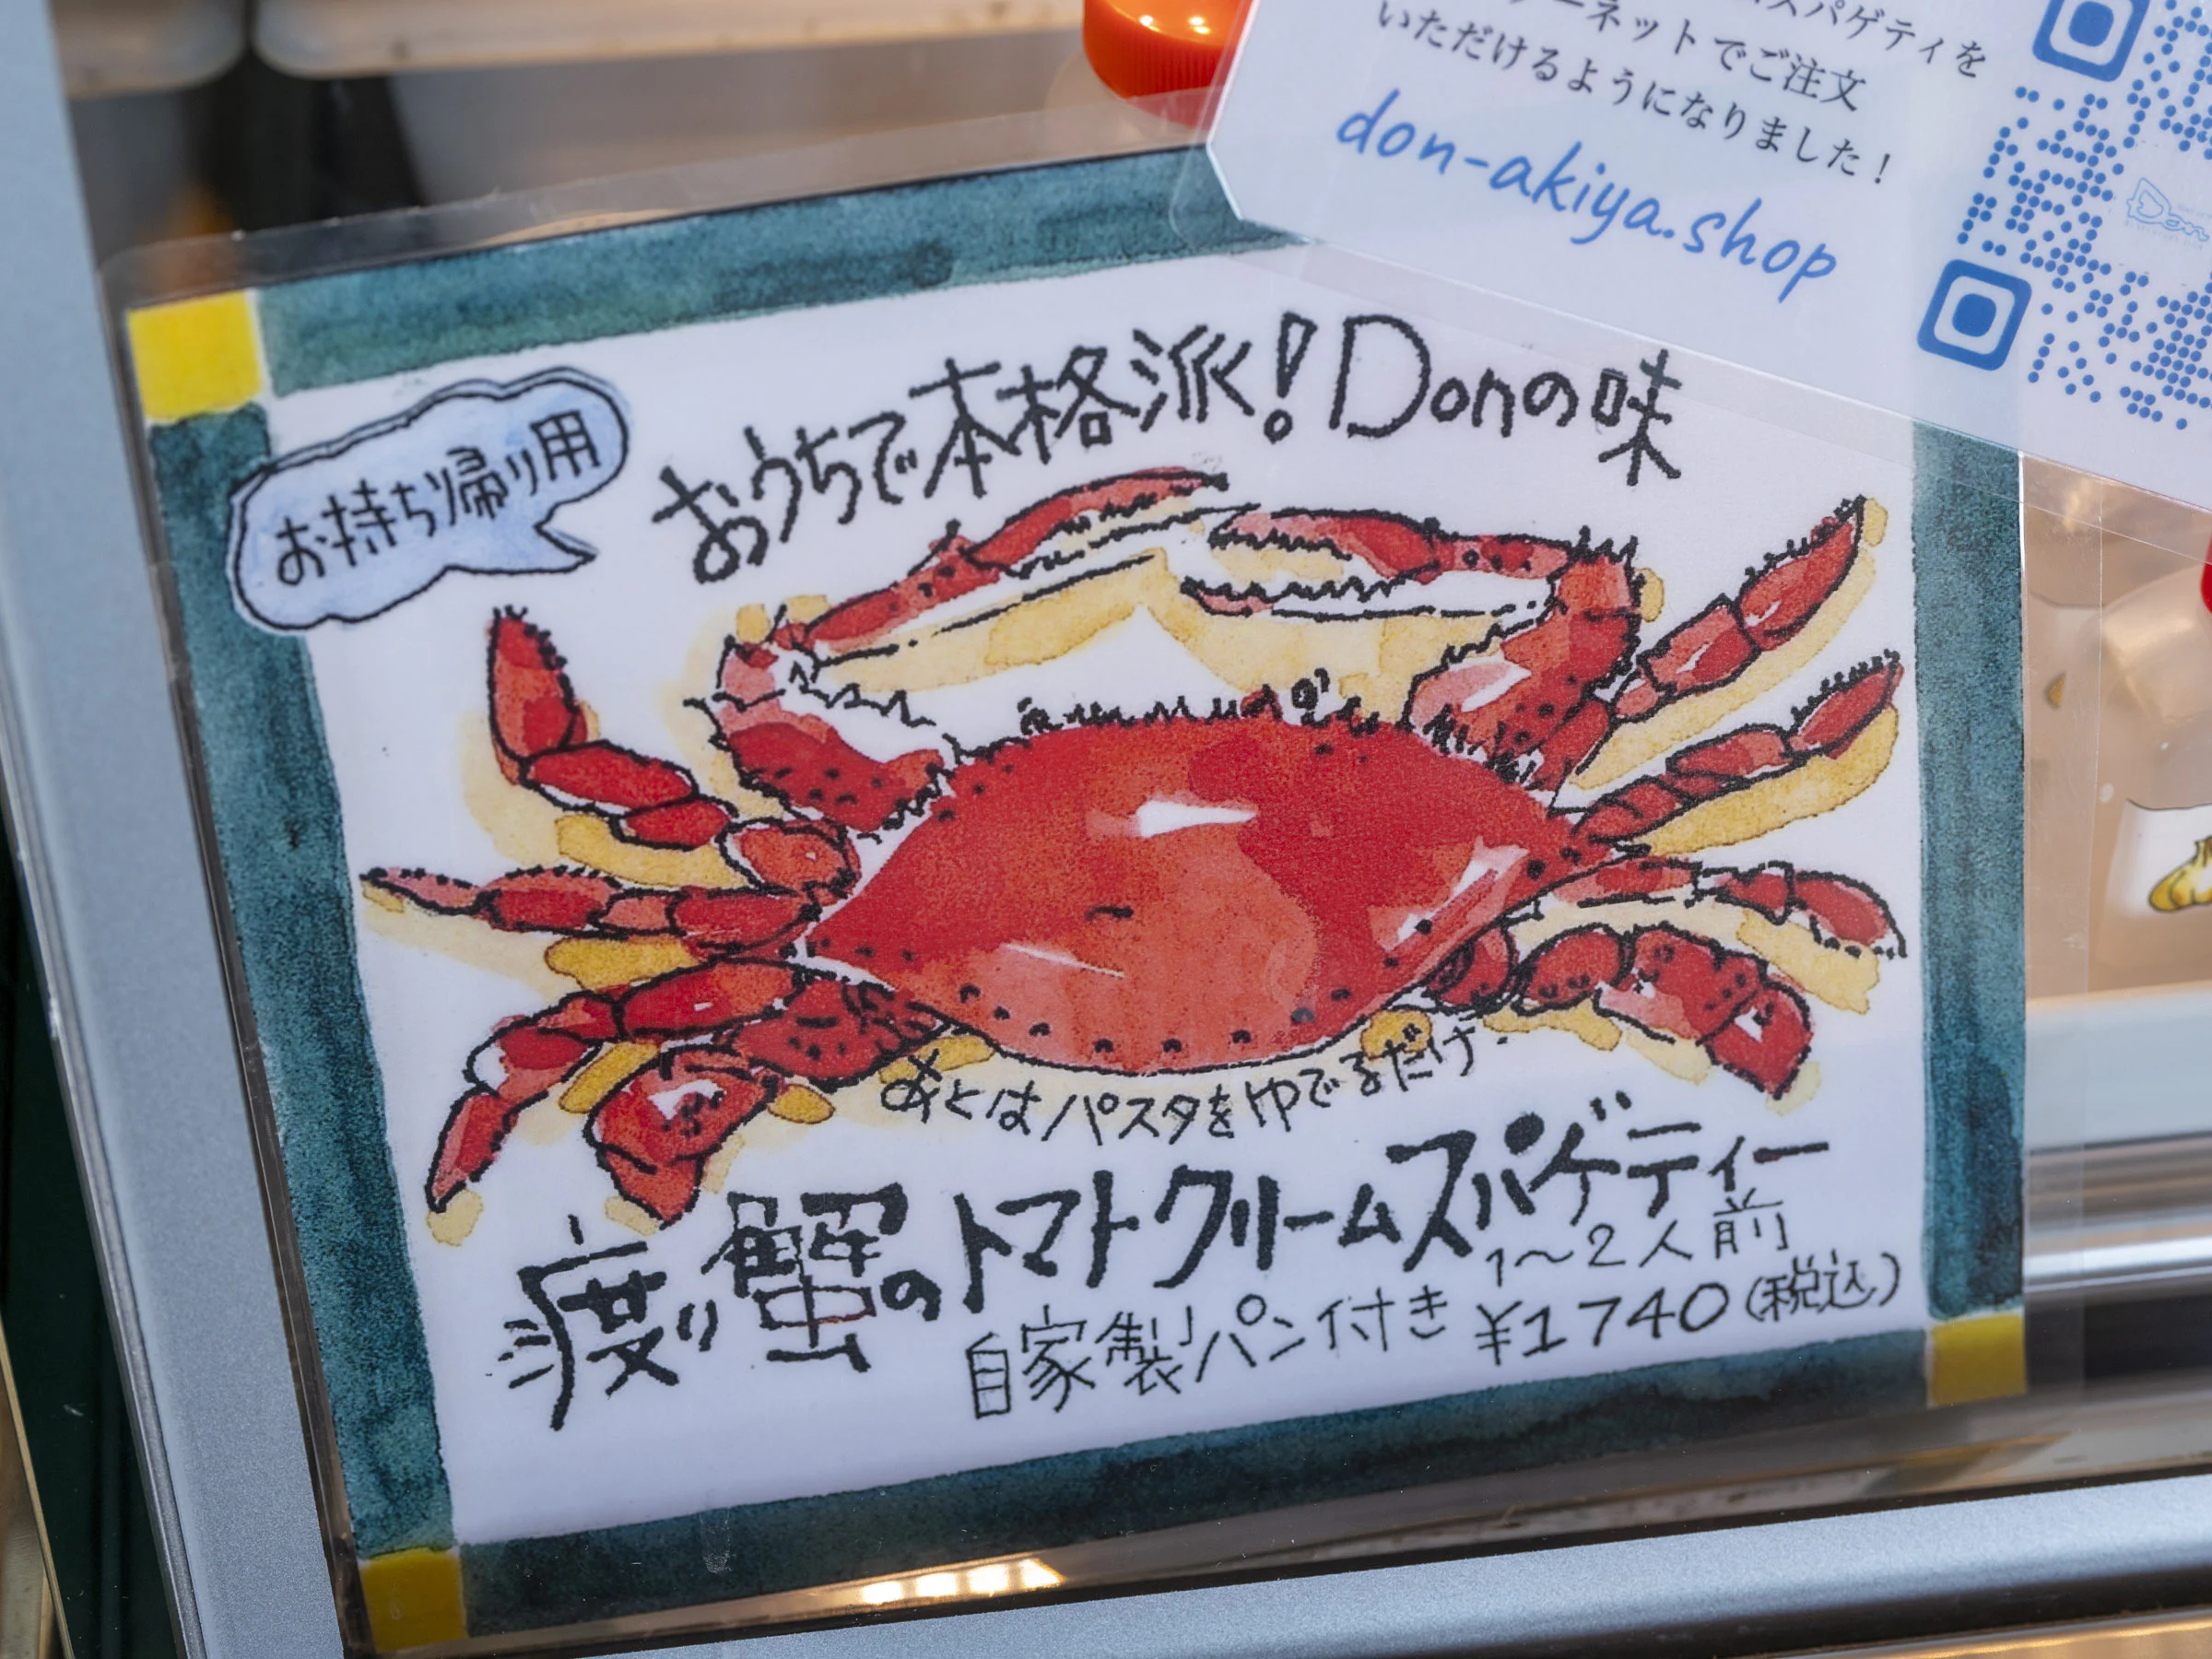 スパゲティを
ーネットでご注文
いただけるようになりました!
don-akiya.shop
Don
お持ち帰り用
おうちで本格派!Donの味
あとはパスタをゆでるだけ.
渡り蟹のトマトクリームスパゲティー
1~2人前
自家製パン付き ¥1740(税込)